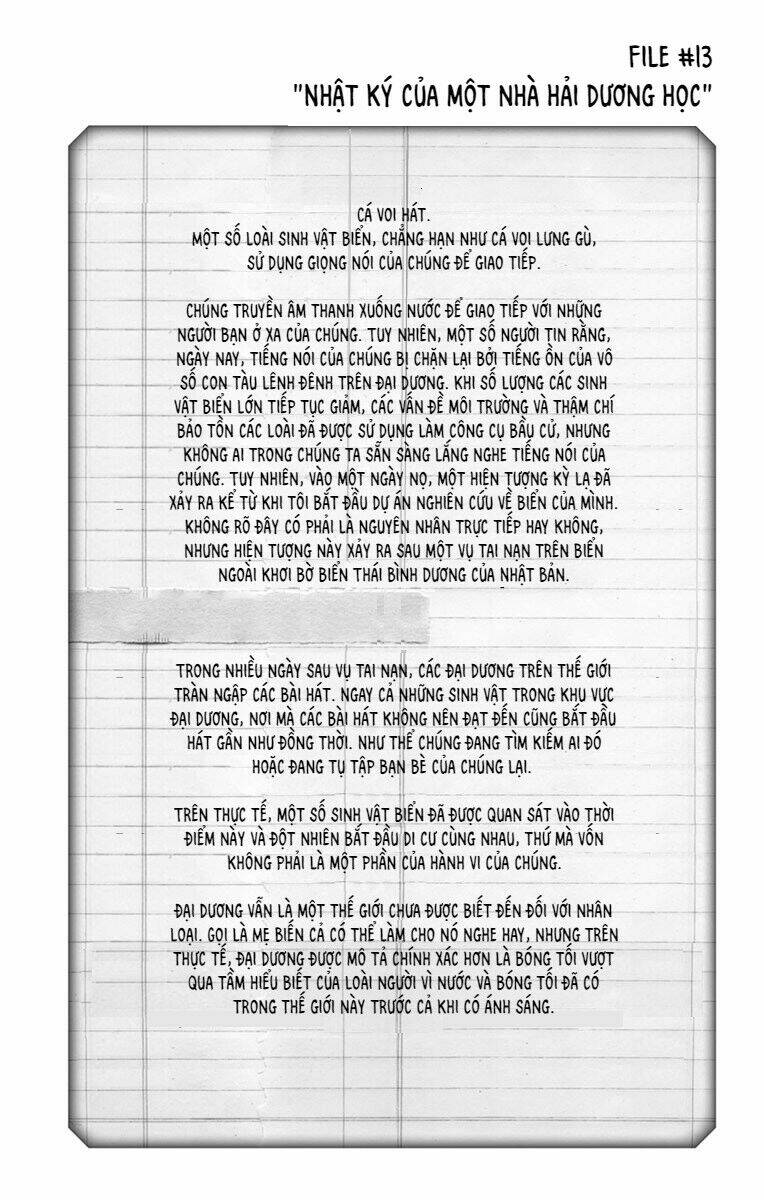 FILE #13
"NHẬT KÝ CỦA MỘT NHÀ HẢI DƯƠNG HỌC"
CÁ VOI HÁT.
MỘT SỐ LOÀI SINH VẬT BIỂN, CHẲNG HẠN NHƯ CÁ VOI LƯNG GÙ,
SỬ DỤNG GIỌNG NÓI CỦA CHÚNG ĐỂ GIAO TIẾP.
CHÚNG TRUYỀN ÂM THANH XUỐNG NƯỚC ĐỂ GIAO TIẾP VỚI NHỮNG
NGƯỜI BẠN Ở XA CỦA CHÚNG. TUY NHIÊN, MỘT SỐ NGƯỜI TIN RẰNG,
NGÀY NAY, TIẾNG NÓI CỦA CHÚNG BỊ CHẶN LẠI BỞI TIẾNG ỒN CỦA VÔ
SỐ CON TÀU LÊNH ĐÊNH TRÊN ĐẠI DƯƠNG. KHI SỐ LƯỢNG CÁC SINH
VẬT BIỂN LỚN TIẾP TỤC GIẢM, CÁC VẤN ĐỀ MÔI TRƯỜNG VÀ THẬM CHÍ
BẢO TỒN CÁC LOÀI ĐÃ ĐƯỢC SỬ DỤNG LÀM CÔNG CỤ BẦU CỬ, NHƯNG
KHÔNG AI TRONG CHÚNG TA SẴN SÀNG LẮNG NGHE TIẾNG NÓI CỦA
CHÚNG. TUY NHIÊN, VÀO MỘT NGÀY NỌ, MỘT HIỆN TƯỢNG KỲ LẠ ĐÃ
XẢY RA KỂ TỪ KHI TÔI BẮT ĐẦU DỰ ÁN NGHIÊN CỨU VỀ BIỂN CỦA MÌNH.
KHÔNG RÕ ĐÂY CÓ PHẢI LÀ NGUYÊN NHÂN TRỰC TIẾP HAY KHÔNG,
NHƯNG HIỆN TƯỢNG NÀY XẢY RA SAU MỘT VỤ TAI NẠN TRÊN BIỂN
NGOÀI KHƠI BỜ BIỂN THÁI BÌNH DƯƠNG CỦA NHẬT BẢN.
TRONG NHIỀU NGÀY SAU VỤ TAI NẠN, CÁC ĐẠI DƯƠNG TRÊN THẾ GIỚI
TRÀN NGẬP CÁC BÀI HÁT. NGAY CẢ NHỮNG SINH VẬT TRONG KHU VỰC
ĐẠI DƯƠNG, NƠI MÀ CÁC BÀI HÁT KHÔNG NÊN ĐẠT ĐẾN CŨNG BẮT ĐẦU
HÁT GẦN NHƯ ĐỒNG THỜI. NHƯ THỂ CHÚNG ĐANG TÌM KIẾM AI ĐÓ
HOẶC ĐANG TỤ TẬP BẠN BÈ CỦA CHÚNG LẠI.
TRÊN THỰC TẾ, MỘT SỐ SINH VẬT BIỂN ĐÃ ĐƯỢC QUAN SÁT VÀO THỜI
ĐIỂM NÀY VÀ ĐỘT NHIÊN BẮT ĐẦU DI CƯ CÙNG NHAU, THỨ MÀ VỐN
KHÔNG PHẢI LÀ MỘT PHẦN CỦA HÀNH VI CỦA CHÚNG.
ĐẠI DƯƠNG VẪN LÀ MỘT THẾ GIỚI CHƯA ĐƯỢC BIẾT ĐẾN ĐỐI VỚI NHÂN
LOẠI. GỌI LÀ MẸ BIỂN CẢ CÓ THỂ LÀM CHO NÓ NGHE HAY, NHƯNG TRÊN
THỰC TẾ, ĐẠI DƯƠNG ĐƯỢC MÔ TẢ CHÍNH XÁC HƠN LÀ BÓNG TỐI VƯỢT
QUA TẦM HIỂU BIẾT CỦA LOÀI NGƯỜI VÌ NƯỚC VÀ BÓNG TỐI ĐÃ CÓ
TRONG THẾ GIỚI NÀY TRƯỚC CẢ KHI CÓ ÁNH SÁNG.